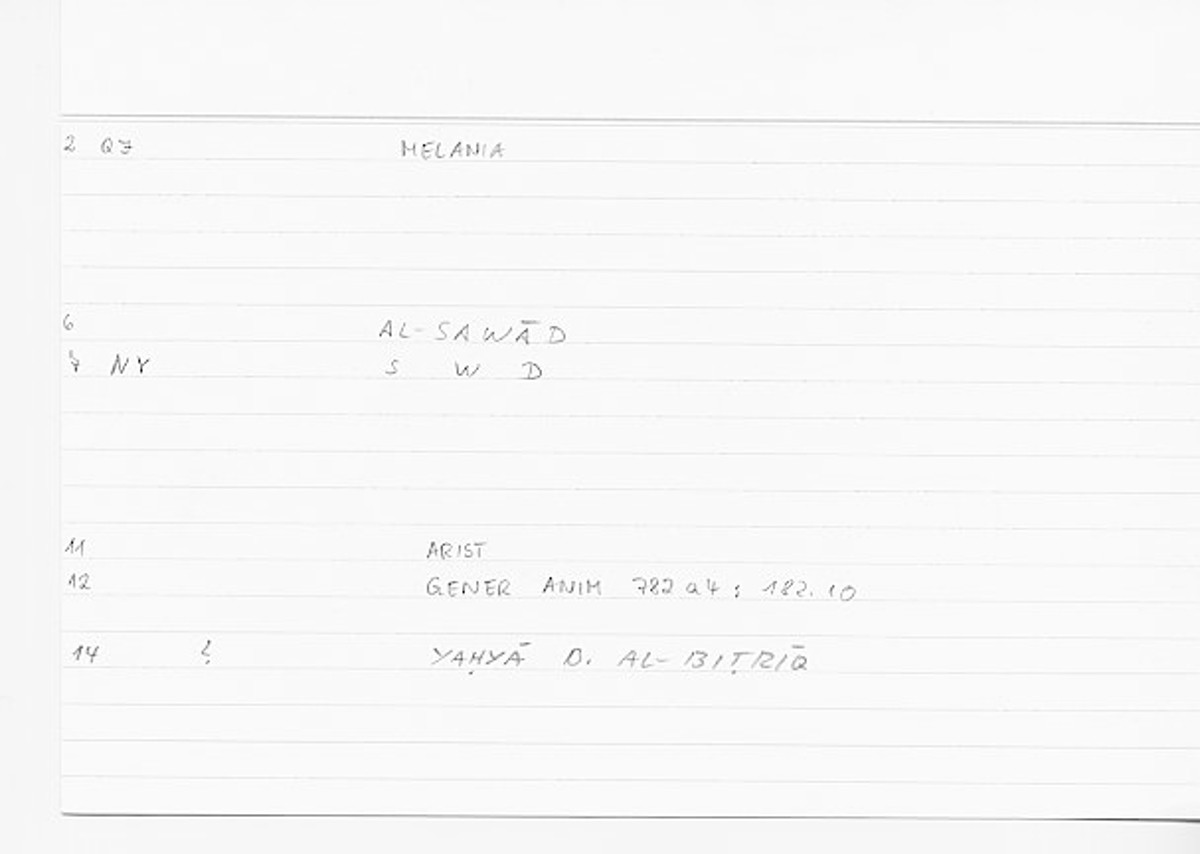 2 QZ MELANIA
6 AL-SAWĀD
7 NY S W D
11 ARIST
12 GENER ANIM 782 a 4 : 182.10
14 YAḤYĀ B. AL-BIṬRĪQ